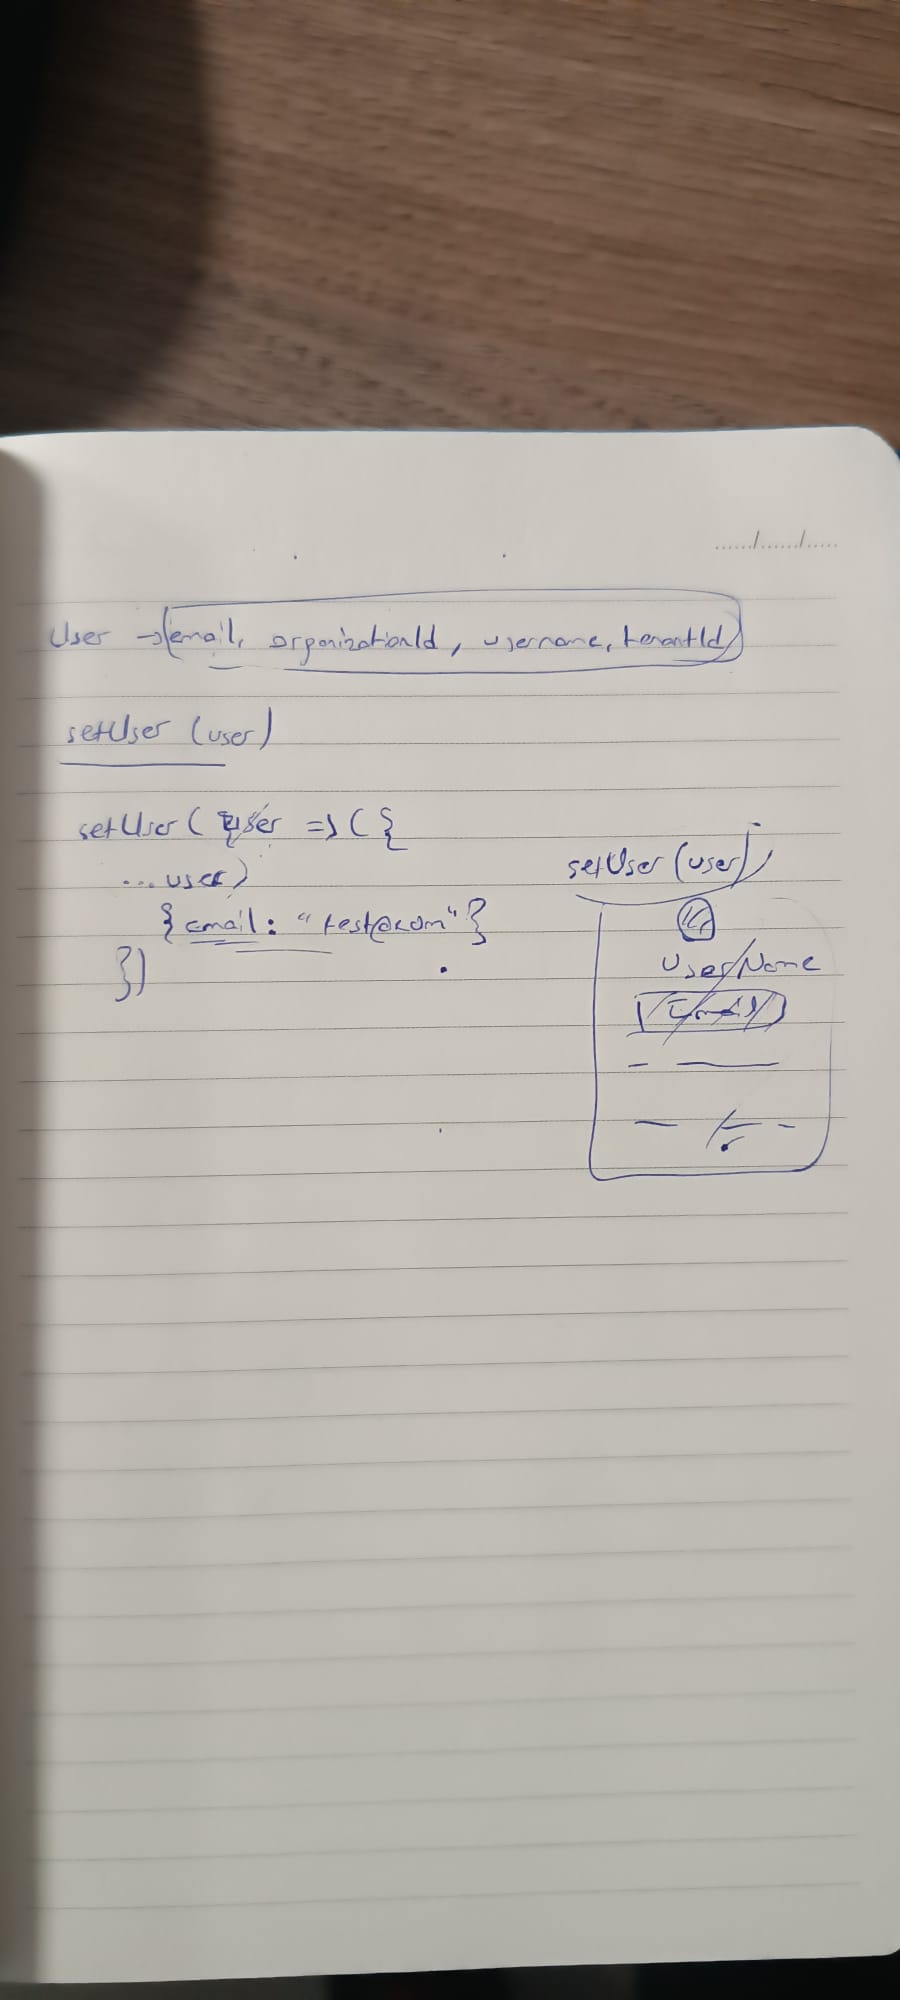 ....../....../.....
User → {email, organizationId, username, tenantId}
setUser (user)
setUser ( user => ( {
...user )
{ email: "test@com" }
})
setUser (user)
UserName
Email